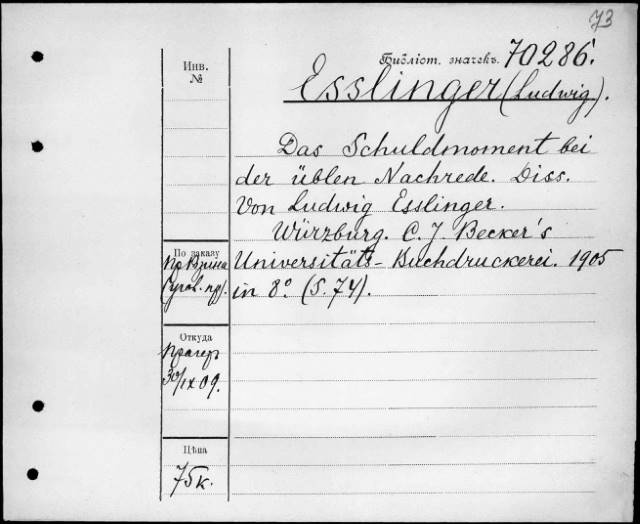 73
Инв.
№
Библіот. значекъ. 70286.
Esslinger (Ludwig).
Das Schuldmoment bei
der üblen Nachrede. Diss.
Von Ludwig Esslinger.
Würzburg. C. J. Becker's
Universitäts-Buchdruckerei. 1905
in 8°. (S. 74).
По заказу
(Угол. пр).
Откуда
Прагеръ
30/IX 09.
Цѣна
75к.